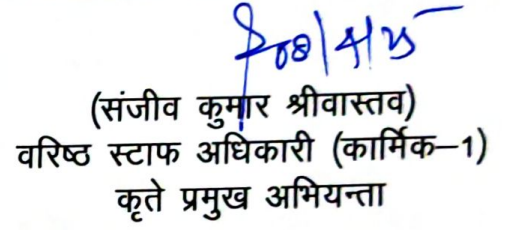 08/4/25
(संजीव कुमार श्रीवास्तव)
वरिष्ठ स्टाफ अधिकारी (कार्मिक–1)
कृते प्रमुख अभियन्ता